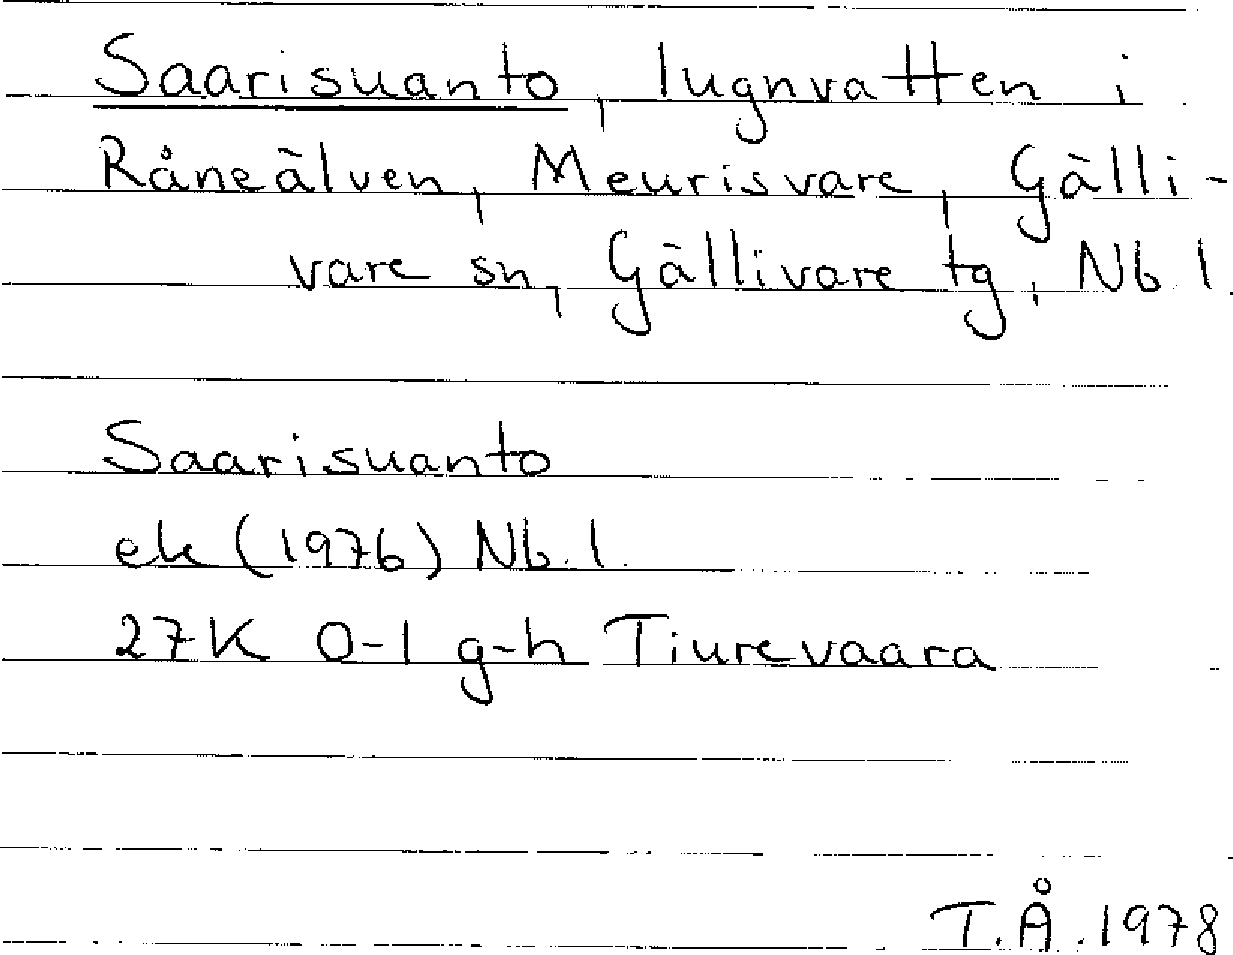 Saarisuanto, lugnvatten i
Råneälven, Meurisvare, Gälli-
vare sn, Gällivare tg, Nb l.
Saarisuanto
ek (1976) Nb. l.
27K 0-1 g-h Tiurevaara
T.Å. 1978